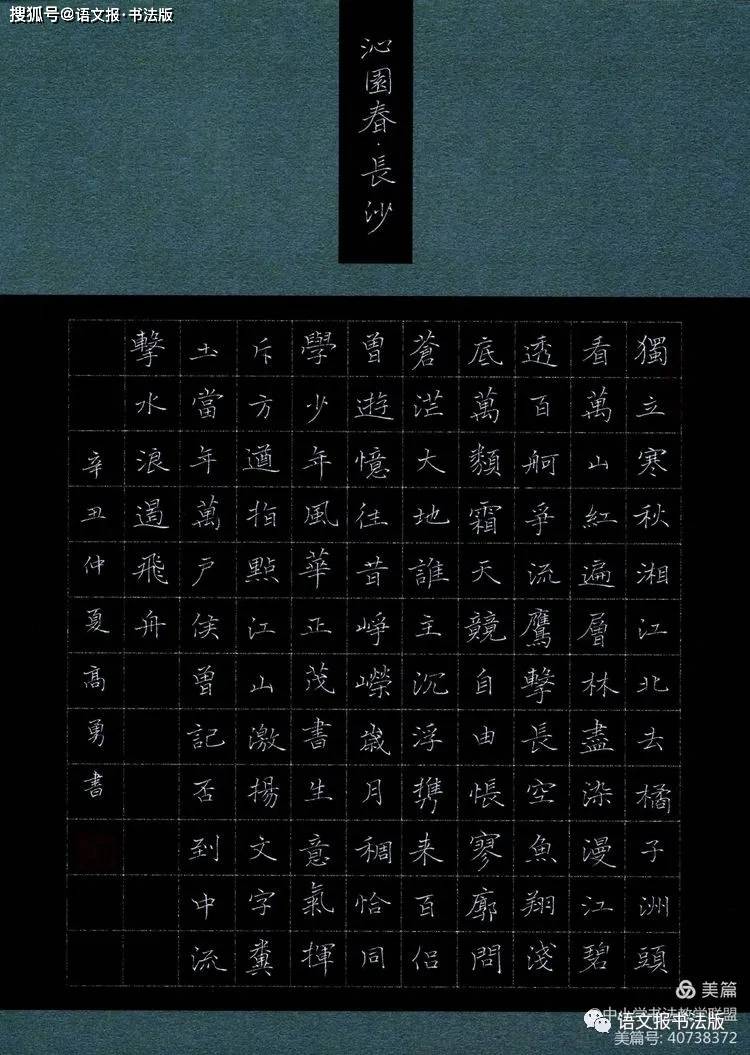 搜狐号@语文报·书法版
沁園春·長沙
獨立寒秋湘江北去橘子洲頭
看萬山紅遍層林盡染漫江碧
透百舸爭流鷹擊長空魚翔淺
底萬類霜天競自由悵寥廓問
蒼茫大地誰主沉浮携来百侣
曾遊憶往昔崢嶸歲月稠恰同
學少年風華正茂書生意氣揮
斥方遒指點江山激揚文字糞
土當年萬户侯曾記否到中流
擊水浪遏飛舟
辛丑仲夏高勇書
美篇
中小学书法教学联盟
语文报书法版
美篇号: 40738372